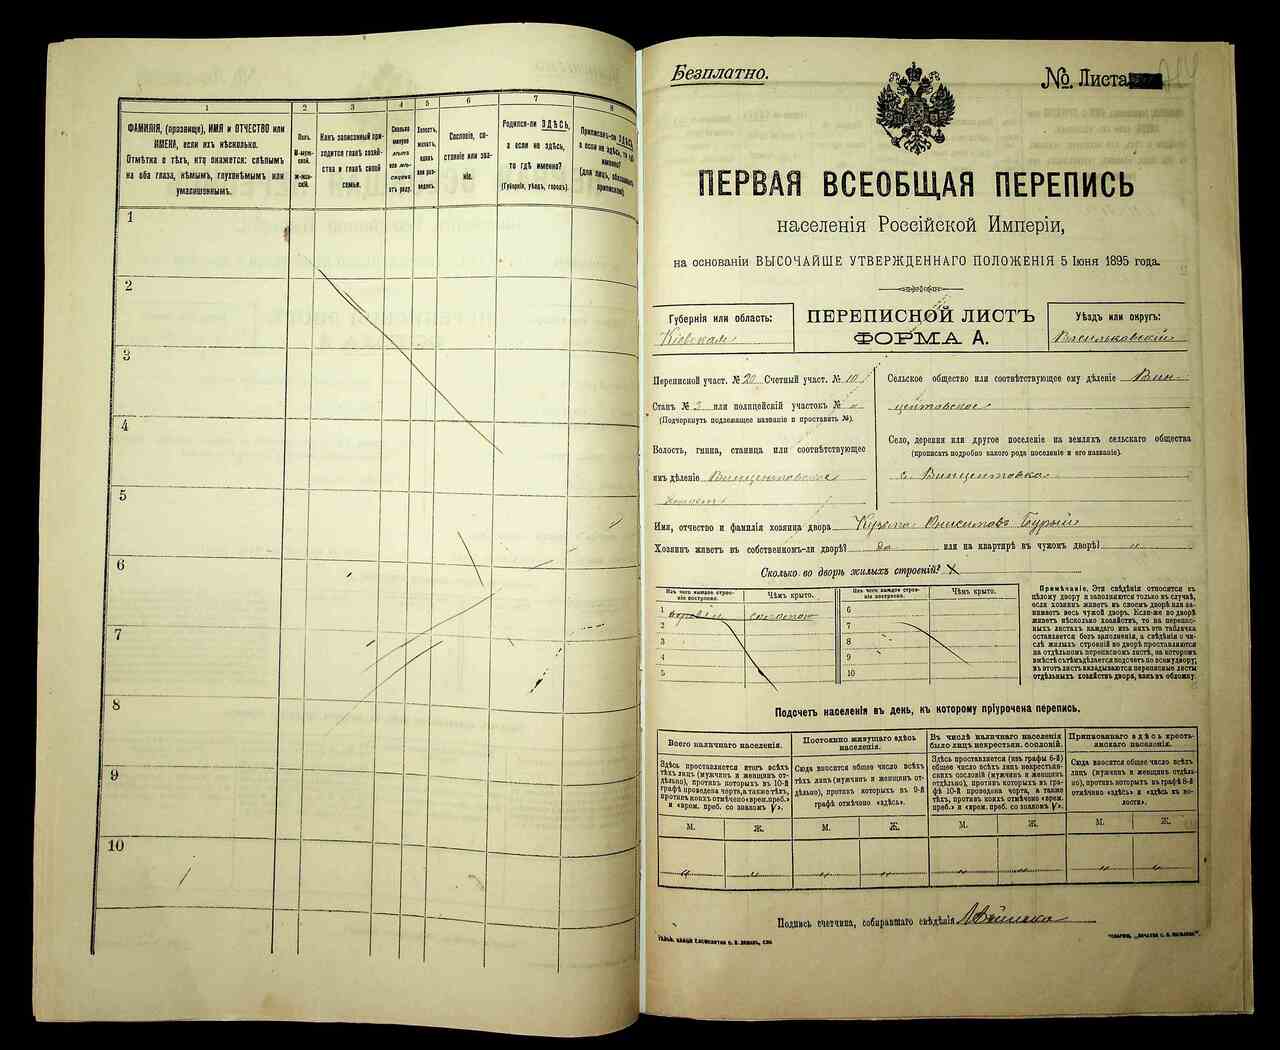 1 2 3 4 5 6 7 8
ФАМИЛІЯ, (прозвище), ИМЯ и ОТЧЕСТВО или
ИМЕНА, если ихъ нѣсколько.
Отмѣтка о тѣхъ, кто окажется: слѣпымъ
на оба глаза, нѣмымъ, глухонѣмымъ или
умалишоннымъ.
Полъ.
М-муж-
ской.
Ж-жен-
скій.
Какъ записанный при-
ходится главѣ хозяй-
ства и главѣ своей
семьи.
Сколько
минуло
лѣтъ
или мѣ-
сяцевъ
отъ роду.
Холостъ,
женатъ,
вдовъ
или раз-
веденъ.
Сословіе, со-
стояніе или зва-
ніе.
Родился-ли ЗДѢСЬ,
а если не здѣсь,
то гдѣ именно?
(Губернія, уѣздъ, городъ).
Приписанъ-ли ЗДѢСЬ,
а если не здѣсь, то гдѣ
именно?
(для лицъ, обязанныхъ
припискою).
1
2
3
4
5
6
7
8
9
10
Безплатно.
№ Листа
ПЕРВАЯ ВСЕОБЩАЯ ПЕРЕПИСЬ
населенія Россійской Имперіи,
на основаніи ВЫСОЧАЙШЕ УТВЕРЖДЕННАГО ПОЛОЖЕНІЯ 5 Іюня 1895 года.
Губернія или область:
Кіевская
ПЕРЕПИСНОЙ ЛИСТЪ
ФОРМА А.
Уѣздъ или округъ:
Васильковскій
Переписной участ. № 20 Счетный участ. № 10
Станъ № 3 или полицейскій участокъ № "
(Подчеркнуть подлежащее названіе и проставить №).
Волость, гмина, станица или соотвѣтствующее
имъ дѣленіе Винцентовская
волость
Сельское общество или соотвѣтствующее ему дѣленіе Вин-
центовское
Село, деревня или другое поселеніе на земляхъ сельскаго общества
(прописать подробно какого рода поселеніе и его названіе).
с. Винцентовка
Имя, отчество и фамилія хозяина двора Кузьма Онисимовъ Бурый
Хозяинъ живетъ въ собственномъ-ли дворѣ? да или на квартирѣ въ чужомъ дворѣ? "
Сколько во дворѣ жилыхъ строеній?
Изъ чего каждое строе-
ніе построено.
Чѣмъ крыто.
Изъ чего каждое строе-
ніе построено.
Чѣмъ крыто.
1 соломою 6
2 7
3 8
4 9
5 10
Примѣчаніе. Эти свѣдѣнія относятся къ
цѣлому двору и заполняются только въ случаѣ,
если хозяинъ живетъ въ своемъ дворѣ или за-
нимаетъ весь чужой дворъ. Если-же во дворѣ
живетъ нѣсколько хозяйствъ, то на перепис-
ныхъ листахъ каждаго изъ нихъ эта табличка
оставляется безъ заполненія, а свѣдѣнія о чи-
слѣ жилыхъ строеній во дворѣ проставляются
на отдѣльномъ переписномъ листѣ, на которомъ
вмѣстѣ съ тѣмъ дѣлается подсчетъ по всему двору;
въ этотъ листъ вкладываются переписные листы
отдѣльныхъ хозяйствъ двора, какъ въ обложку.
Подсчетъ населенія въ день, къ которому пріурочена перепись.
Всего наличнаго населенія.
Здѣсь проставляется итогъ всѣхъ
тѣхъ лицъ (мужчинъ и женщинъ от-
дѣльно), противъ которыхъ въ 10-й
графѣ проведена черта, а также тѣхъ,
противъ коихъ отмѣчено «врем. преб.»
и «врем. преб. со знакомъ V».
Постоянно живущаго здѣсь
населенія.
Сюда вносится общее число всѣхъ
тѣхъ лицъ (мужчинъ и женщинъ от-
дѣльно), противъ которыхъ въ 9-й
графѣ отмѣчено «здѣсь».
Въ числѣ наличнаго населенія
было лицъ некрестьян. сословій.
Здѣсь проставляется (изъ графы 6-й)
общее число всѣхъ лицъ некрестьян-
скихъ сословій (мужчинъ и женщинъ
отдѣльно), противъ которыхъ въ гра-
фѣ 10-й проведена черта, а также
тѣхъ, противъ коихъ отмѣчено «врем.
преб.» и «врем. преб. со знакомъ V».
Приписаннаго здѣсь кресть-
янскаго населенія.
Сюда вносится общее число всѣхъ
лицъ (мужчинъ и женщинъ отдѣль-
но), противъ которыхъ въ графѣ 8-й
отмѣчено «здѣсь» и «здѣсь въ во-
лости».
М. Ж. М. Ж. М. Ж. М. Ж.
" " " " " " " "
Подпись счетчика, собиравшаго свѣдѣнія